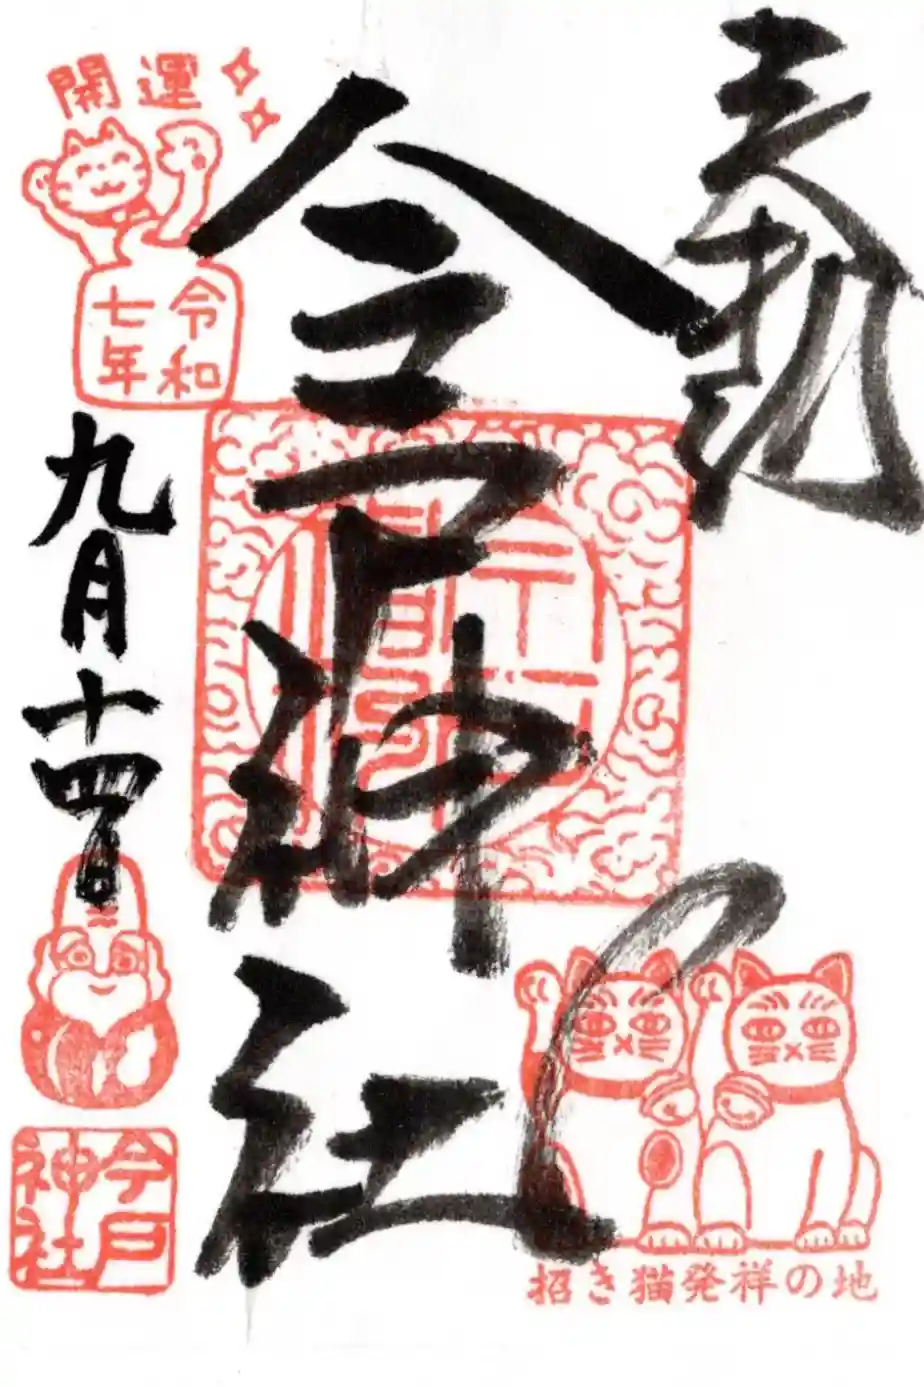 奉拝
今戸神社
開運
令和
七年
九月十四日
今戸
神社
招き猫発祥の地